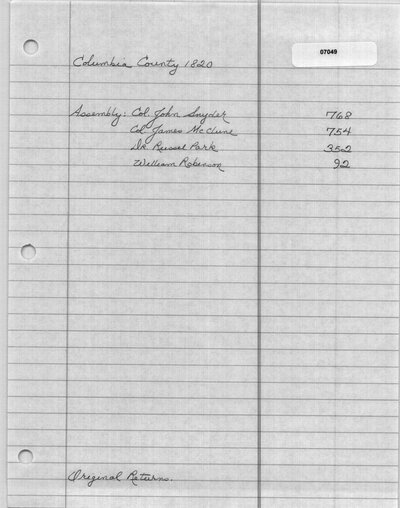 07049
Columbia County 1820
Assembly: Col. John Snyder 768
Col. James McClure 754
Dr. Russel Park 352
William Robinson 92
Original Returns.